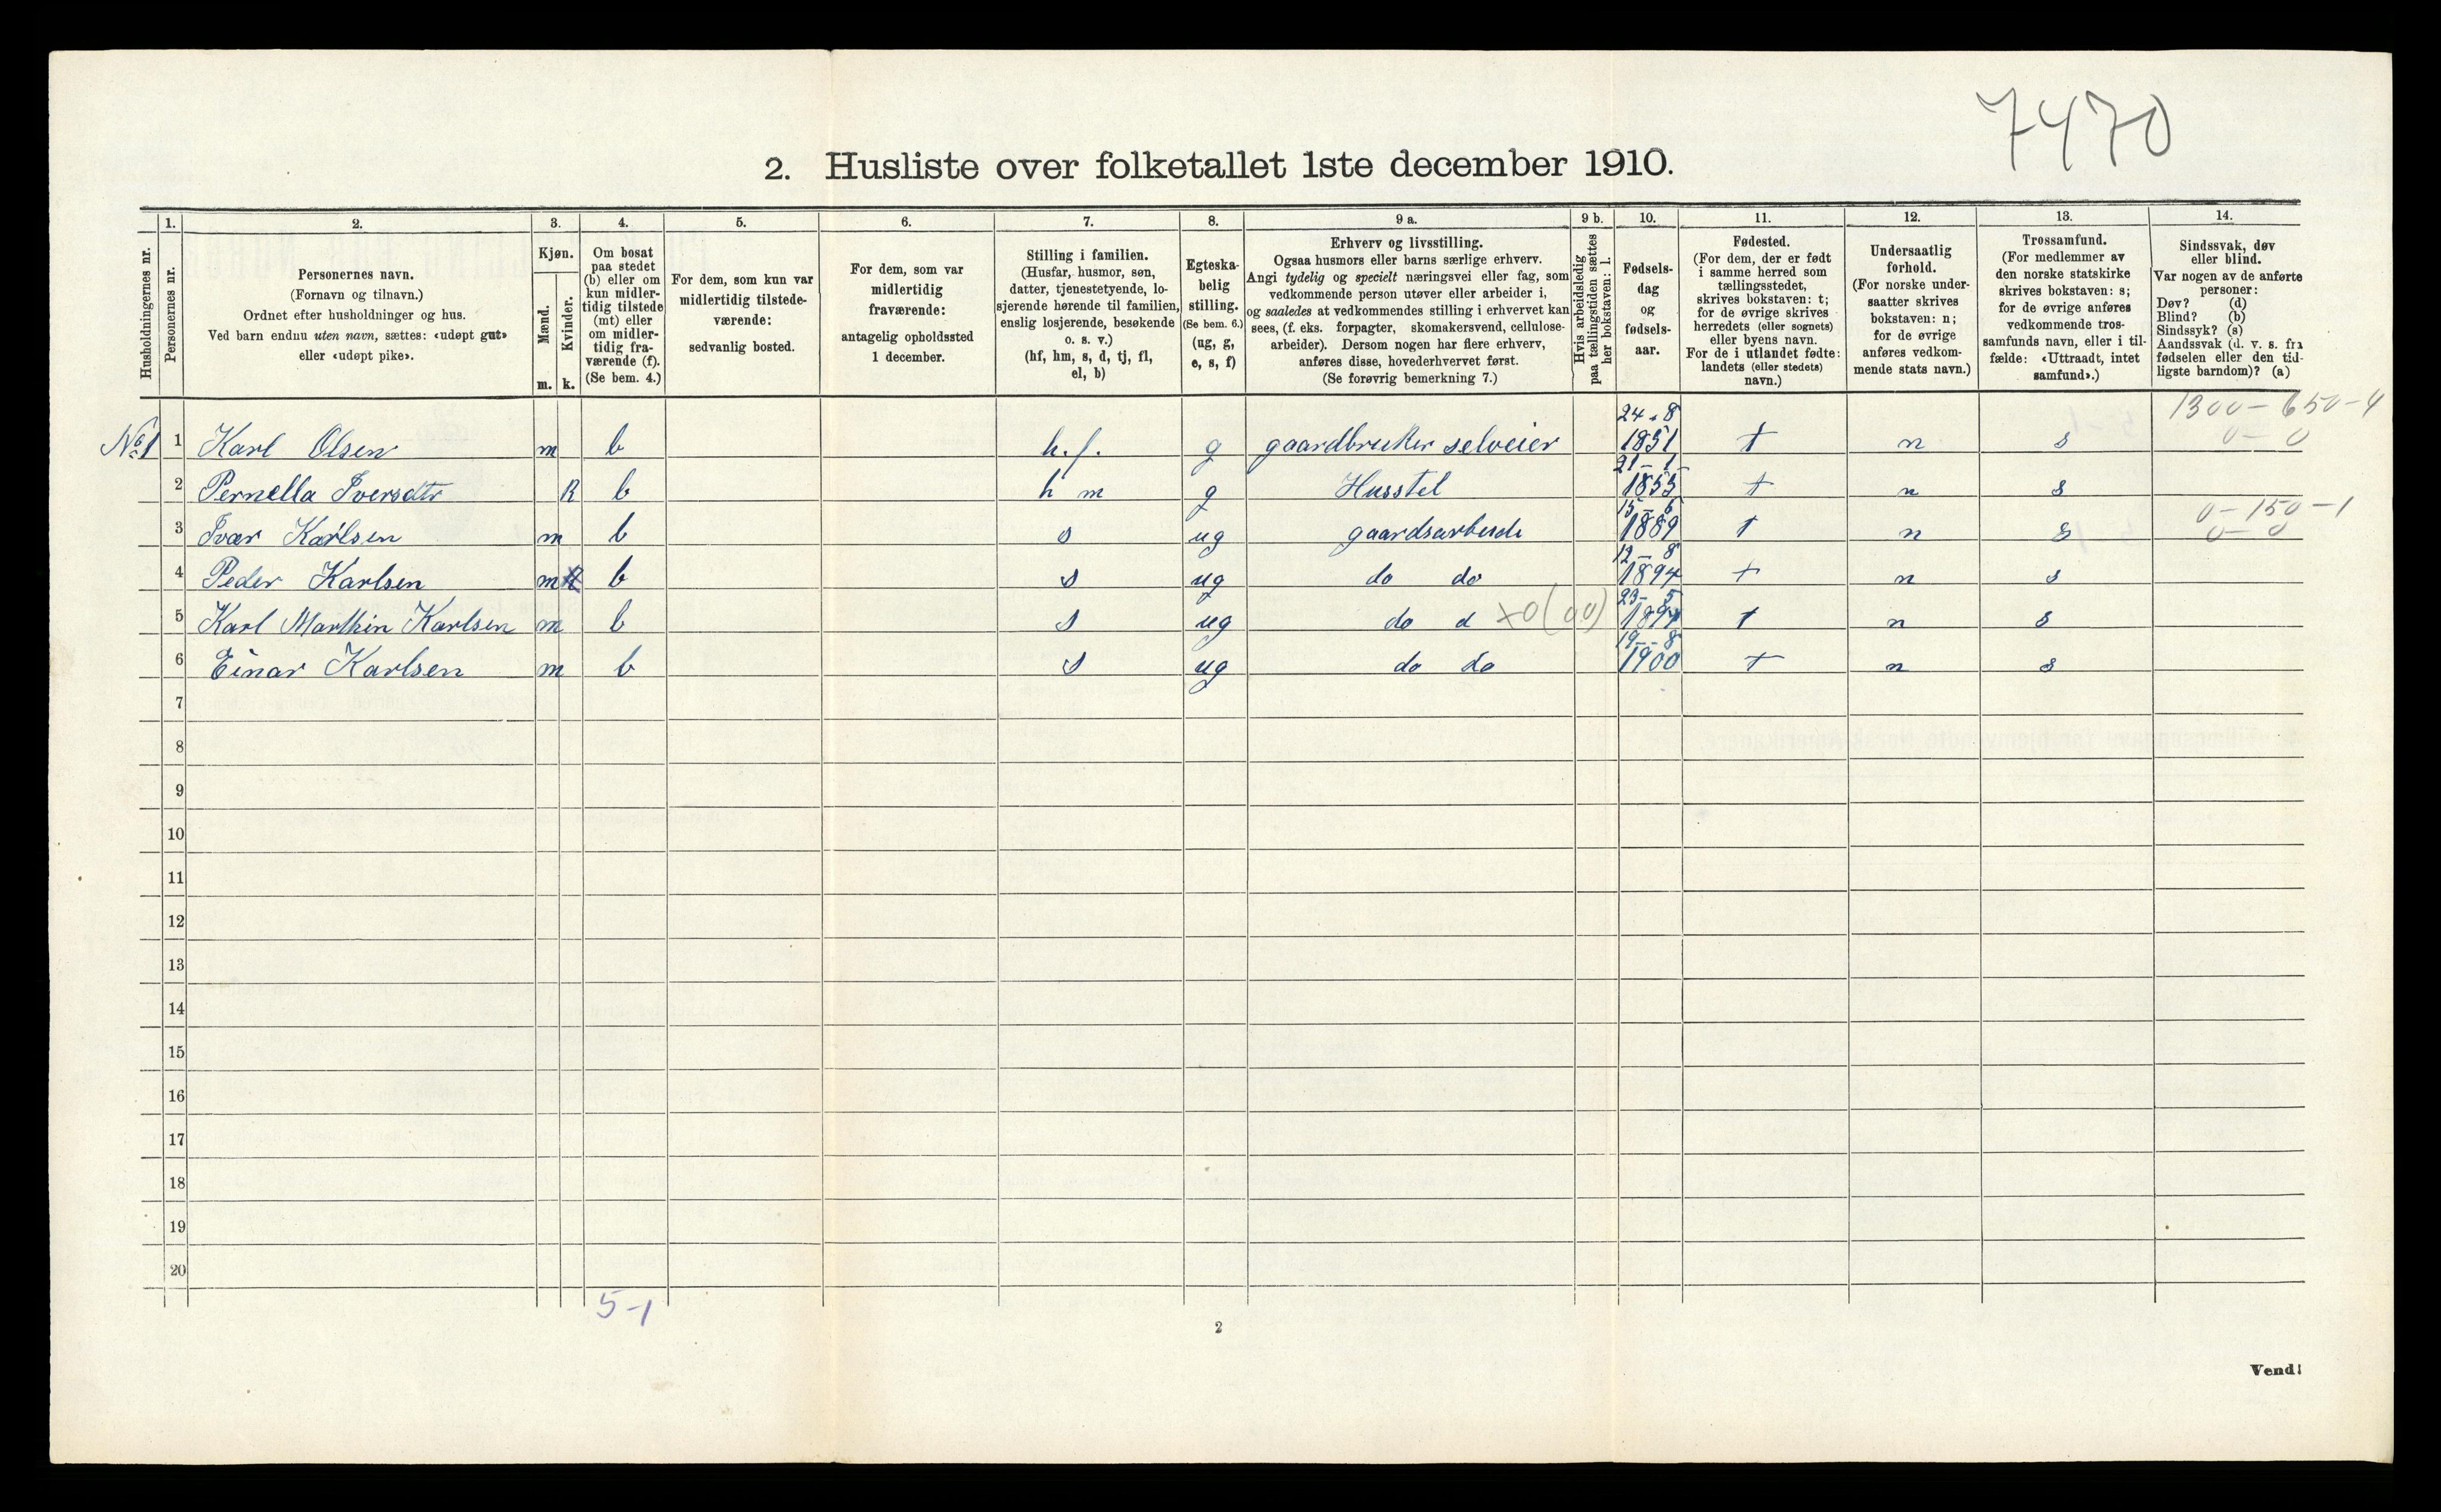 7470
2. Husliste over folketallet 1ste december 1910.
Husholdningernes nr.
1.
Personernes nr.
2.
Personernes navn.
(Fornavn og tilnavn.)
Ordnet efter husholdninger og hus.
Ved barn endnu uten navn, sættes: «udøpt gut»
eller «udøpt pike».
3.
Kjøn.
Mænd.
m.
Kvinder.
k.
4.
Om bosat
paa stedet
(b) eller om
kun midler-
tidig tilstede
(mt) eller
om midler-
tidig fra-
værende (f).
(Se bem. 4.)
5.
For dem, som kun var
midlertidig tilstede-
værende:
sedvanlig bosted.
6.
For dem, som var
midlertidig
fraværende:
antagelig opholdssted
1 december.
7.
Stilling i familien.
(Husfar, husmor, søn,
datter, tjenestetyende, lo-
sjerende hørende til familien,
enslig losjerende, besøkende
o. s. v.)
(hf, hm, s, d, tj, fl,
el, b)
8.
Egteska-
belig
stilling.
(Se bem. 6.)
(ug, g,
e, s, f)
9 a.
Erhverv og livsstilling.
Ogsaa husmors eller barns særlige erhverv.
Angi tydelig og specielt næringsvei eller fag, som
vedkommende person utøver eller arbeider i,
og saaledes at vedkommendes stilling i erhvervet kan
sees, (f. eks. forpagter, skomakersvend, cellulose-
arbeider). Dersom nogen har flere erhverv,
anføres disse, hovederhvervet først.
(Se forøvrig bemerkning 7.)
9 b.
Hvis arbeidsledig
paa tællingstiden sættes
her bokstaven: l.
10.
Fødsels-
dag
og
fødsels-
aar.
11.
Fødested.
(For dem, der er født
i samme herred som
tællingsstedet,
skrives bokstaven: t;
for de øvrige skrives
herredets (eller sognets)
eller byens navn.
For de i utlandet fødte:
landets (eller stedets)
navn.)
12.
Undersaatlig
forhold.
(For norske under-
saatter skrives
bokstaven: n;
for de øvrige
anføres vedkom-
mende stats navn.)
13.
Trossamfund.
(For medlemmer av
den norske statskirke
skrives bokstaven: s;
for de øvrige anføres
vedkommende tros-
samfunds navn, eller i til-
fælde: «Uttraadt, intet
samfund».)
14.
Sindssvak, døv
eller blind.
Var nogen av de anførte
personer:
Døv? (d)
Blind? (b)
Sindssyk? (s)
Aandssvak (d. v. s. fra
fødselen eller den tid-
ligste barndom)? (a)
1300-650-4
0-0
No 1 1 Karl Olsen m b h.f. g gaardbruker selveier 24-8 1851 t n s
2 Pernella Iversdtr k b h m g Husstel 21-1 1855 t n s
0-150-1
0-0
3 Ivar Karlsen m b s ug gaardsarbeide 15-6 1889 t n s
4 Peder Karlsen m b s ug do do 12-8 1894 t n s
5 Karl Marthin Karlsen m b s ug do d x0(00) 23-5 1897 t n s
6 Einar Karlsen m b s ug do do 19-8 1900 t n s
7
8
9
10
11
12
13
14
15
16
17
18
19
20
5-1
2
Vend!